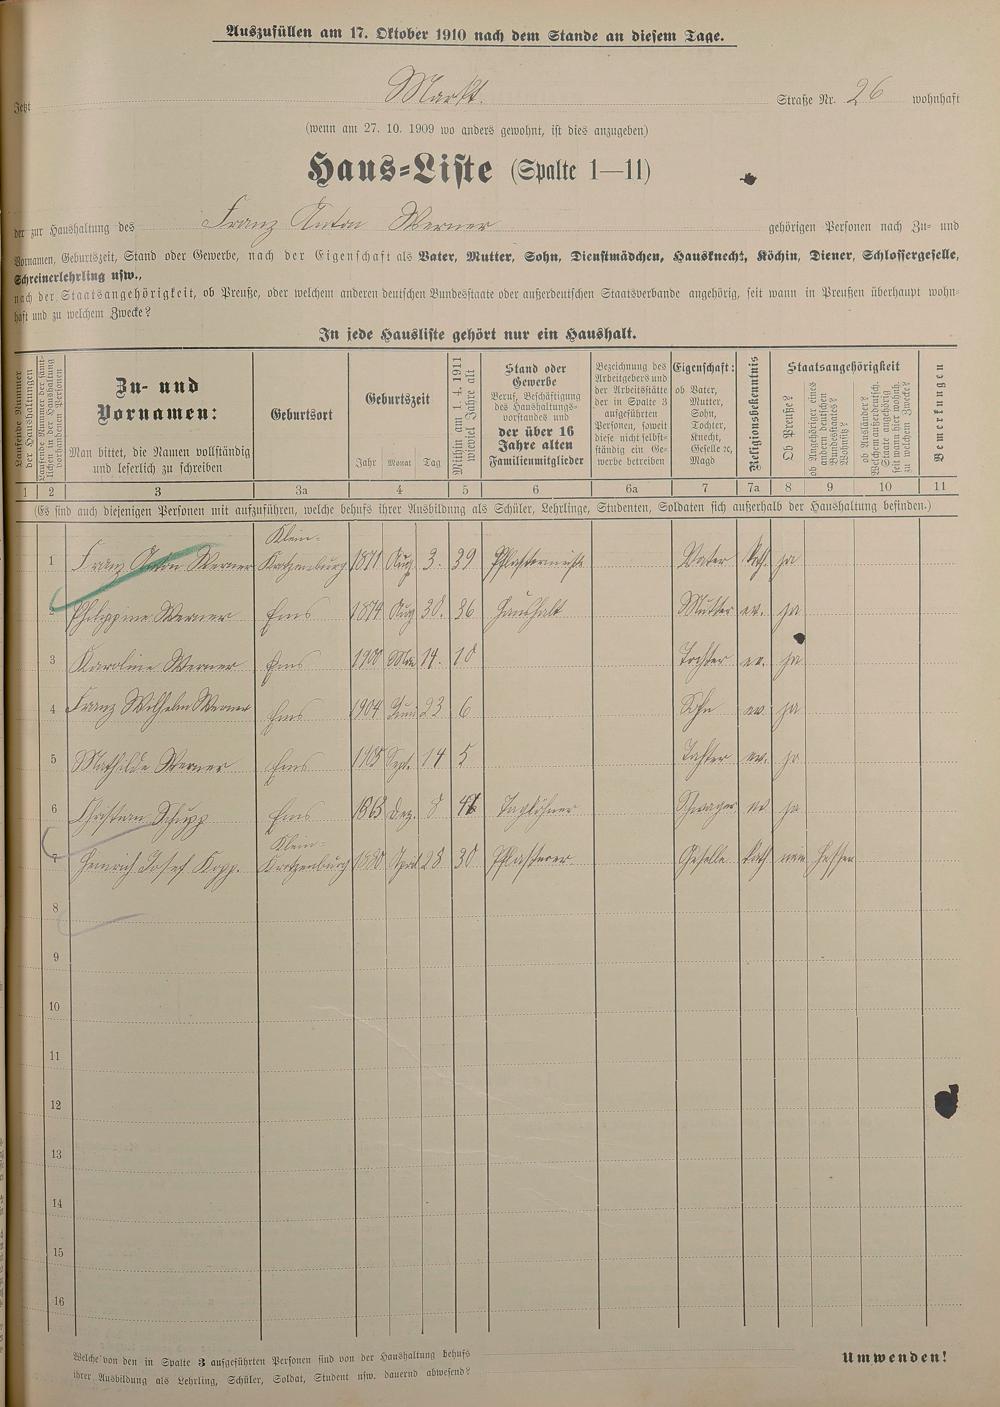 Auszufüllen am 17. Oktober 1910 nach dem Stande an diesem Tage.
Jetzt Markt. Straße Nr. 26 wohnhaft
(wenn am 27. 10. 1909 wo anders gewohnt, ist dies anzugeben)
Haus-Liste (Spalte 1—11)
der zur Haushaltung des Franz Anton Werner gehörigen Personen nach Zu- und
Vornamen, Geburtszeit, Stand oder Gewerbe, nach der Eigenschaft als Vater, Mutter, Sohn, Dienstmädchen, Hausknecht, Köchin, Diener, Schlossergeselle,
Schreinerlehrling usw.,
nach der Staatsangehörigkeit, ob Preuße, oder welchem anderen deutschen Bundesstaate oder außerdeutschen Staatsverbande angehörig, seit wann in Preußen überhaupt wohn-
haft und zu welchem Zwecke?
In jede Hausliste gehört nur ein Haushalt.
Laufende Nummer
der Haushaltungen
Laufende Nummer der sämt-
lichen in der Haushaltung
vorhandenen Personen
Zu- und
Vornamen:
Man bittet, die Namen vollständig
und leserlich zu schreiben
Geburtsort
Geburtszeit
Jahr Monat Tag
Mithin am 1. 4. 1911
wieviel Jahre alt
Stand oder
Gewerbe
Beruf, Beschäftigung
des Haushaltungs-
vorstandes und
der über 16
Jahre alten
Familienmitglieder
Bezeichnung des
Arbeitgebers und
der Arbeitsstätte
der in Spalte 3
aufgeführten
Personen, soweit
diese nicht selbst-
ständig ein Ge-
werbe betreiben
Eigenschaft:
ob Vater,
Mutter,
Sohn,
Tochter,
Knecht,
Geselle ec,
Magd
Religionsbekenntnis
Staatsangehörigkeit
Ob Preuße?
ob Angehöriger eines
andern deutschen
Bundesstaates?
Wohnsitz?
ob Ausländer?
Welchem außerdeutsch.
Staate angehörig
seit wann hier wohnh.
zu welchem Zwecke?
Bemerkungen
1 2 3 3a 4 5 6 6a 7 7a 8 9 10 11
(Es sind auch diejenigen Personen mit aufzuführen, welche behufs ihrer Ausbildung als Schüler, Lehrlinge, Studenten, Soldaten sich außerhalb der Haushaltung befinden.)
Klein-
1 Franz Anton Werner Krotzenburg 1871 Aug 3. 39 Pflastermeister Vater kath. ja
2 Philippine Werner Ems 1874 Aug 30. 36 Haushalt Mutter ev. ja
3 Karoline Werner Ems 1900 Mai 14. 10 Tochter ev. ja
4 Franz Wilhelm Werner Ems 1904 Juni 23 6 Sohn ev. ja
5 Mathilde Werner Ems 1905 Sept. 14 5 Tochter ev. ja
6 Christian Schupp Ems 1863 Dez. 8 Taglöhner Schwager ev ja
Klein-
7 Heinrich Josef Kopp. Krotzenburg 1880 April 23 30 Pflasterer Geselle kath nein Hessen
8
9
10
11
12
13
14
15
16
Welche von den in Spalte 3 aufgeführten Personen sind von der Haushaltung behufs
ihrer Ausbildung als Lehrling, Schüler, Soldat, Student usw. dauernd abwesend?
Umwenden!